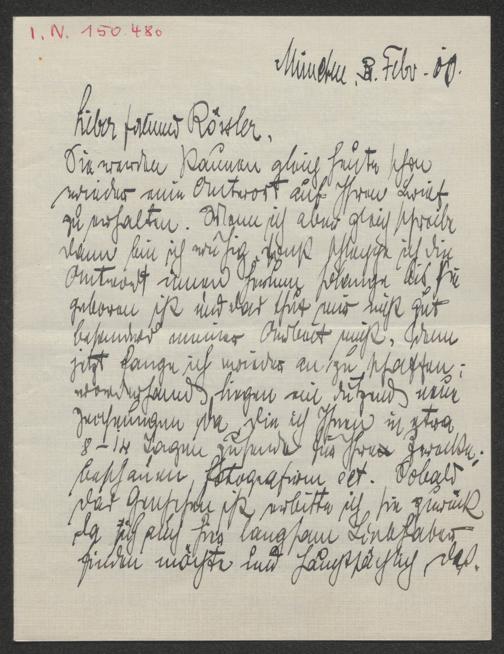 I.N. 150.480
München, 3. Febr.
Lieber Freund Rössler,
Sie werden staunen gleich heute schon
wieder eine Antwort auf Ihren Brief
zu erhalten. Wenn ich aber gleich schreibe
dann bin ich ruhig, sonst schleppe ich die
Antwort immer herum solange bis sie
geboren ist und das thut mir nicht gut
besonders meiner Arbeit nicht. Denn
jetzt fange ich wieder an zu schaffen:
vorderhand liegen ein dutzend neue
Zeichnungen da, die ich Ihnen in etwa
8-14 Tagen zusende für Ihre Zwecke:
beschauen, fotografieren ect. Sobald
das geschehen ist, erbitte ich sie zurück
da ich auch hier langsam Liebhaber
finden möchte und hauptsächlich das.